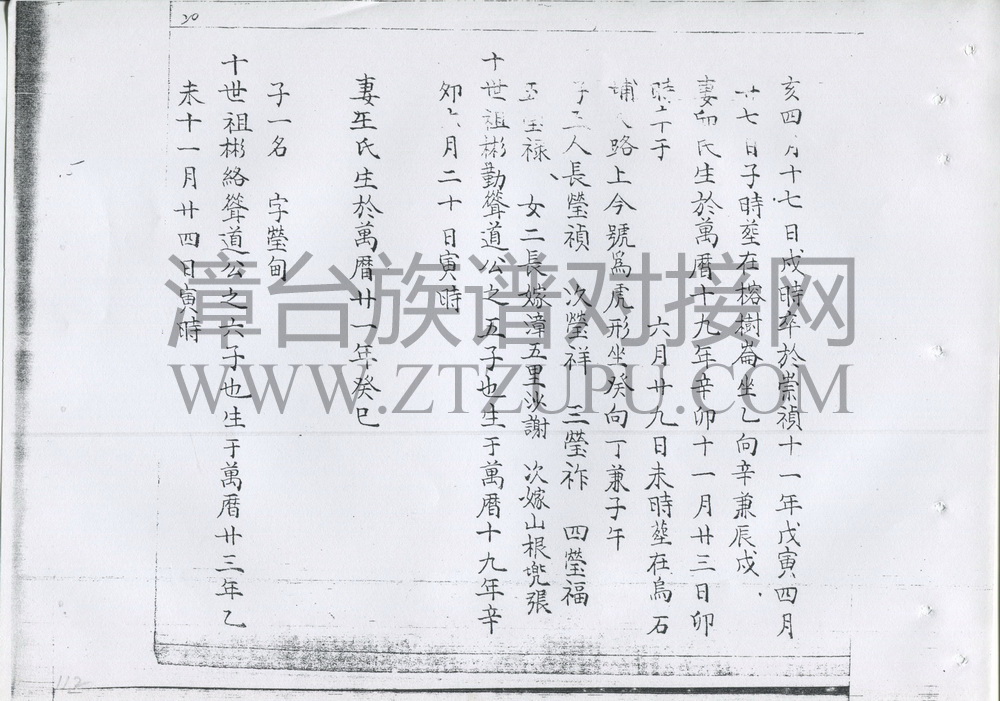 20
亥四月十七日戍時卒於崇禎十一年戊寅四月
廿七日子時塟在榕樹崙坐乙向辛兼辰戍
妻 氏生於萬曆十九年辛卯十一月廿三日卯
時卒于 六月廿九日未時塟在烏石
埔 路上今號為虎形坐癸向丁兼子午
子五人長瑩禎 次瑩祥 三瑩祚 四瑩福
五瑩祿、女二長嫁漳五里沙謝 次嫁山根兠張
十世祖彬勤聳道公之五子也生于萬曆十九年辛
卯六月二十日寅時
妻 氏生於萬曆廿一年癸巳
子一名 字瑩甸
十世祖彬絡聳道公之六子也生于萬曆廿三年乙
未十一月廿四日寅時
漳台族谱对接网
WWW.ZTZUPU.COM
112